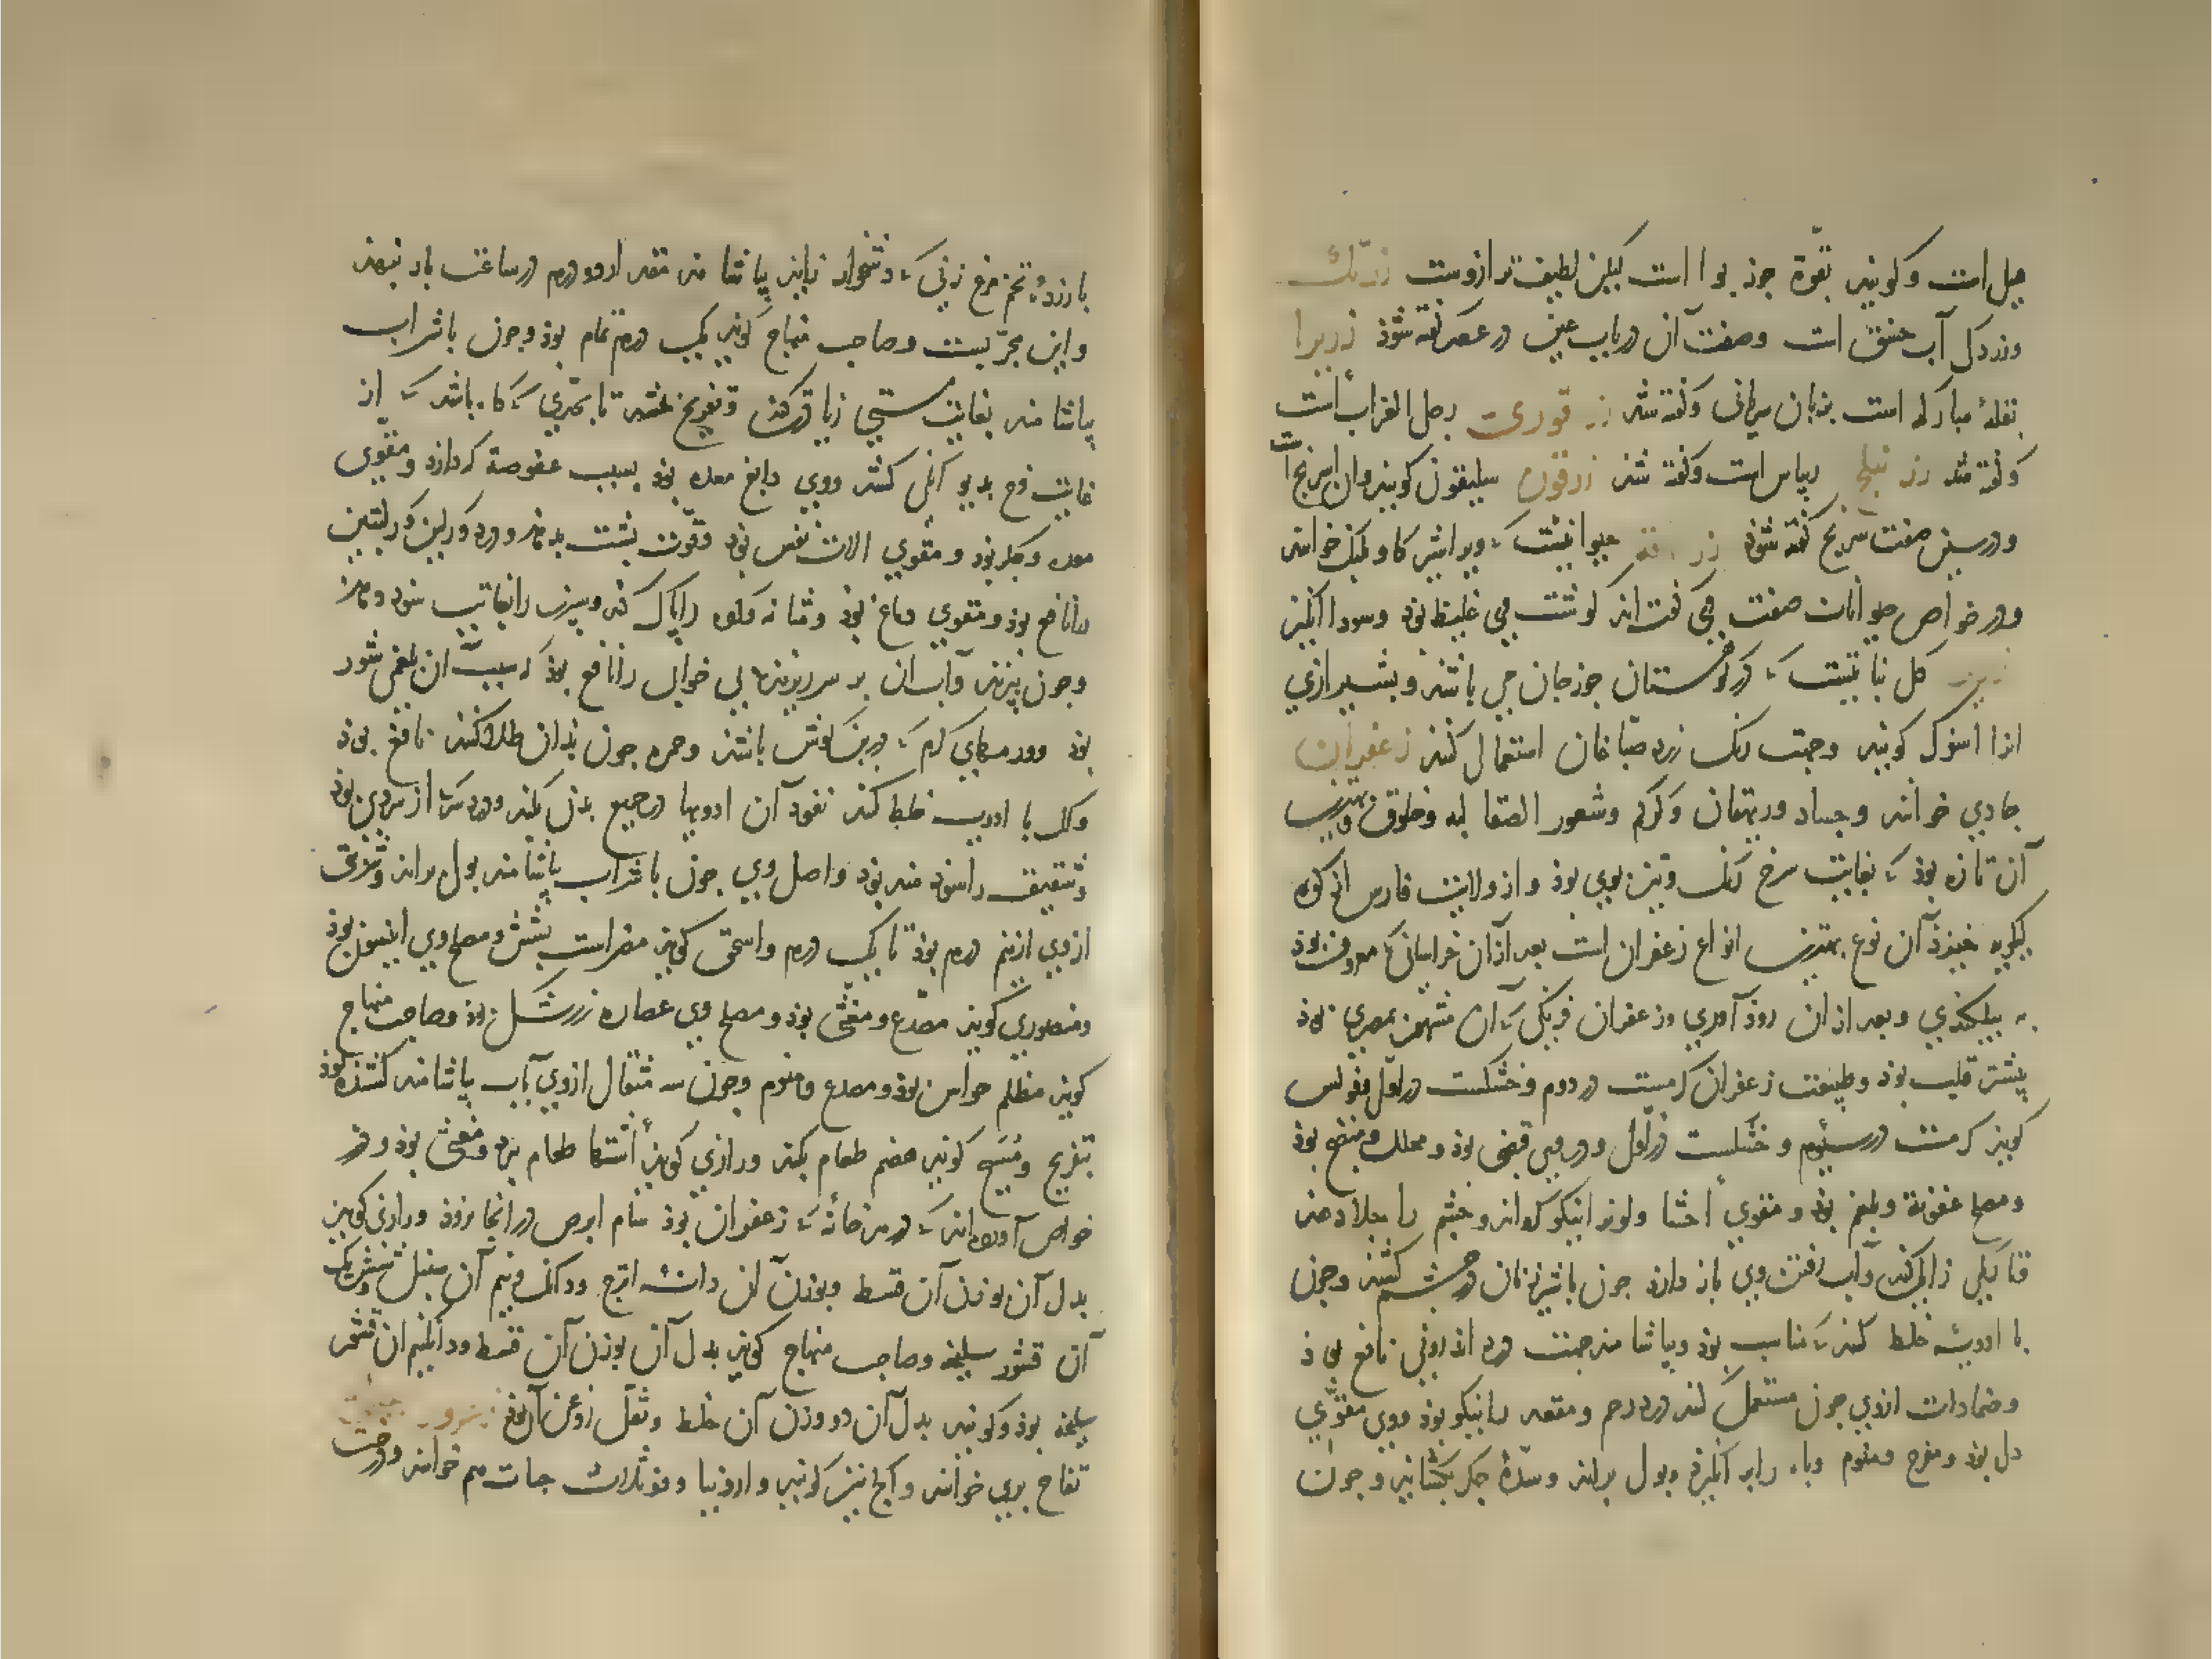 جبل است و کویند بقوة جوز بوا است لیکن لطیف تر ازوست زرنک
وزردک آب عتیق است وصفت آن در باب عین در عصر کفته شود زریرا
بقلهٔ مبارکه است بزبان سریانی و کفته شد زر قوری رجل الغراب است
و کفته شد زر نیلج ریباس است و کفته شد زرقون سیلیقون کویند و آن اسرنج است
و در سین صفت سرنج کفته شود حیوانیست که ویرا اشتر کاو پلنک خوانند
و در خواص حیوانات صفت وی کفته اند کوشت وی غلیظ بود و سودا انکیز
زریر کل نباتیست که در کوهستان جوزجان می باشد و بشیرازی
انرا اسفرک کویند و جهت رنک زرد صباغان استعمال کنند زعفران
جادی خوانند و جساد و ریهقان و کرکم و شعور الصقالبه و خلوق و بهترین
آن تازه بود که بغایت سرخ رنک و تیزبوی بود و از ولایت فارس از کوه
کیلویه خیزد آن نوع بهترین انواع زعفران است بعد از آن خراسانی که معروف بود
به بیلکندی و بعد از آن رود آوری و زعفران فرنکی که آن مشهور بمصری بود
بیشتر قلب بود و طبیعت زعفران کرمست در دوم و خشکست در اول و فولس
کوید کرمست در سیوم و خشکست در اول و در وی قبض بود و محلل و منضج بود
و مصلح عفونة و بلغم بود و مقوی احشا و لون را نیکو کرداند و چشم را جلا دهد
و آب رفتن وی باز دارد چون با شیر زنان در چشم کشند و چون
با ادویه خلط کنند که مناسب بود و بیاشامند جهت درد اندرونی نافع بود
و ضمادات ازوی چون مستعمل کنند درد رحم و مقعد را نیکو بود و وی مقوی
دل بود و مفرح و منوم و باه را بر انکیزد و بول براند و سدهٔ جکر بکشاید و چون
با زردهٔ تخم مرغ زنی که دشخوار زاید بیاشامد مقدار دو درم در ساعت بار بنهد
و این مجربست و صاحب منهاج کوید یک درم تمام بود و چون با شراب
بیاشامند بغایت مستی زیادت کند و تفریح تا بحدی که باشد که از
غایت فرح بدیوانکی کشد و وی دابغ معده بود بسبب عفوصة که دارد و مقوی
معده و جکر بود و مقوی آلات نفس بود و قوت پشت بدهد و درد
را نافع بود و مقوی دماغ بود و مثانه و کرده را پاک کند و سپرز را بغایت سود دهد
و چون بپزند و آب آن بر سر ریزند بی خوابی را نافع بود که سبب آن بلغم شور
بود و ورمهای کرم که در بن کوش باشد و حمره چون بدان طلا کنند نافع بود
و کل با ادویه خلط کنند نفوذ آن ادویها در جمیع بدن بکند
و شقیقه را سود مند بود و اصل وی چون با شراب بیاشامند بول براند و شربتی
ازوی از نیم درم بود تا یک درم و اسحق کوید مضر است بشش و مصلح وی انیسون بود
و منصوری کوید مصدع و مغثی بود و مصلح وی عصارهٔ زرشک بود و صاحب منهاج
کوید مظلم حواس بود و مصدع و منوم و چون سه مثقال ازوی بآب بیاشامند کشنده بود
بتفریح و مسیح کوید هضم طعام بکند و رازی کوید اشتها طعام ببرد و مغثی بود و در
خواص آورده اند که در هر خانهٔ که زعفران بود سام ابرص در آنجا نرود و رازی کوید
بدل آن بوزن آن قسط و بوزن آن دانهٔ اترج و دانک و نیم آن سنبل و شش یک
آن قشور سلیخه و صاحب منهاج کوید بدل آن بوزن آن قسط و دانک و نیم آن قشر
سلیخه بود و کویند بدل آن دو وزن آن خلط و ثفل روغن آن بود زعرور
تفاح بری خوانند و آلج نیز کویند و ارونیا هم خوانند و درخت